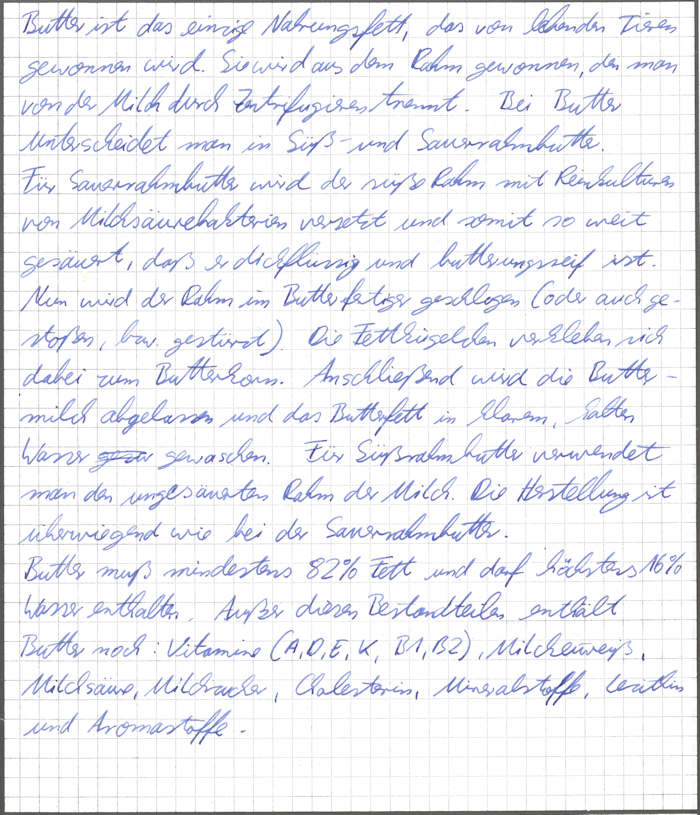 Butter ist das einzige Nahrungsfett, das von lebenden Tieren
gewonnen wird. Sie wird aus dem Rahm gewonnen, den man
von der Milch durch Zentrifugieren trennt. Bei Butter
unterscheidet man in Süß- und Sauerrahmbutter.
Für Sauerrahmbutter wird der süße Rahm mit Reinkulturen
von Milchsäurebakterien versetzt und somit so weit
gesäuert, daß er dickflüssig und butterungsreif ist.
Nun wird der Rahm im Butterfertiger geschlagen (oder auch ge-
stoßen, bzw. gestürzt). Die Fettkügelchen verkleben sich
dabei zum Butterkorn. Anschließend wird die Butter-
milch abgelassen und das Butterfett in klarem, kalten
Wasser gewaschen. Für Süßrahmbutter verwendet
man den ungesäuerten Rahm der Milch. Die Herstellung ist
überwiegend wie bei der Sauerrahmbutter.
Butter muß mindestens 82% Fett und darf höchstens 16%
Wasser enthalten. Außer diesen Bestandteilen enthält
Butter noch: Vitamine (A,D,E,K, B1,B2), Milcheiweiß,
Milchsäure, Milchzucker, Cholesterin, Mineralstoffe, Lecithin
und Aromastoffe.